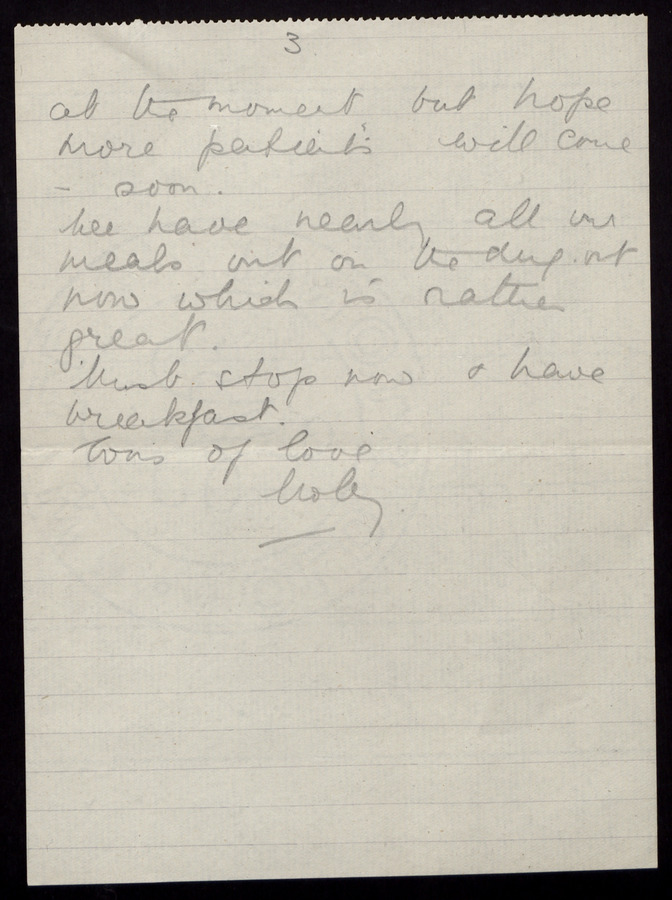 3
at the moment but hope
more patients will come
- soon.
We have nearly all our
meals out on the dug-out
now which is rather
great.
Must stop now & have
breakfast.
Tons of love